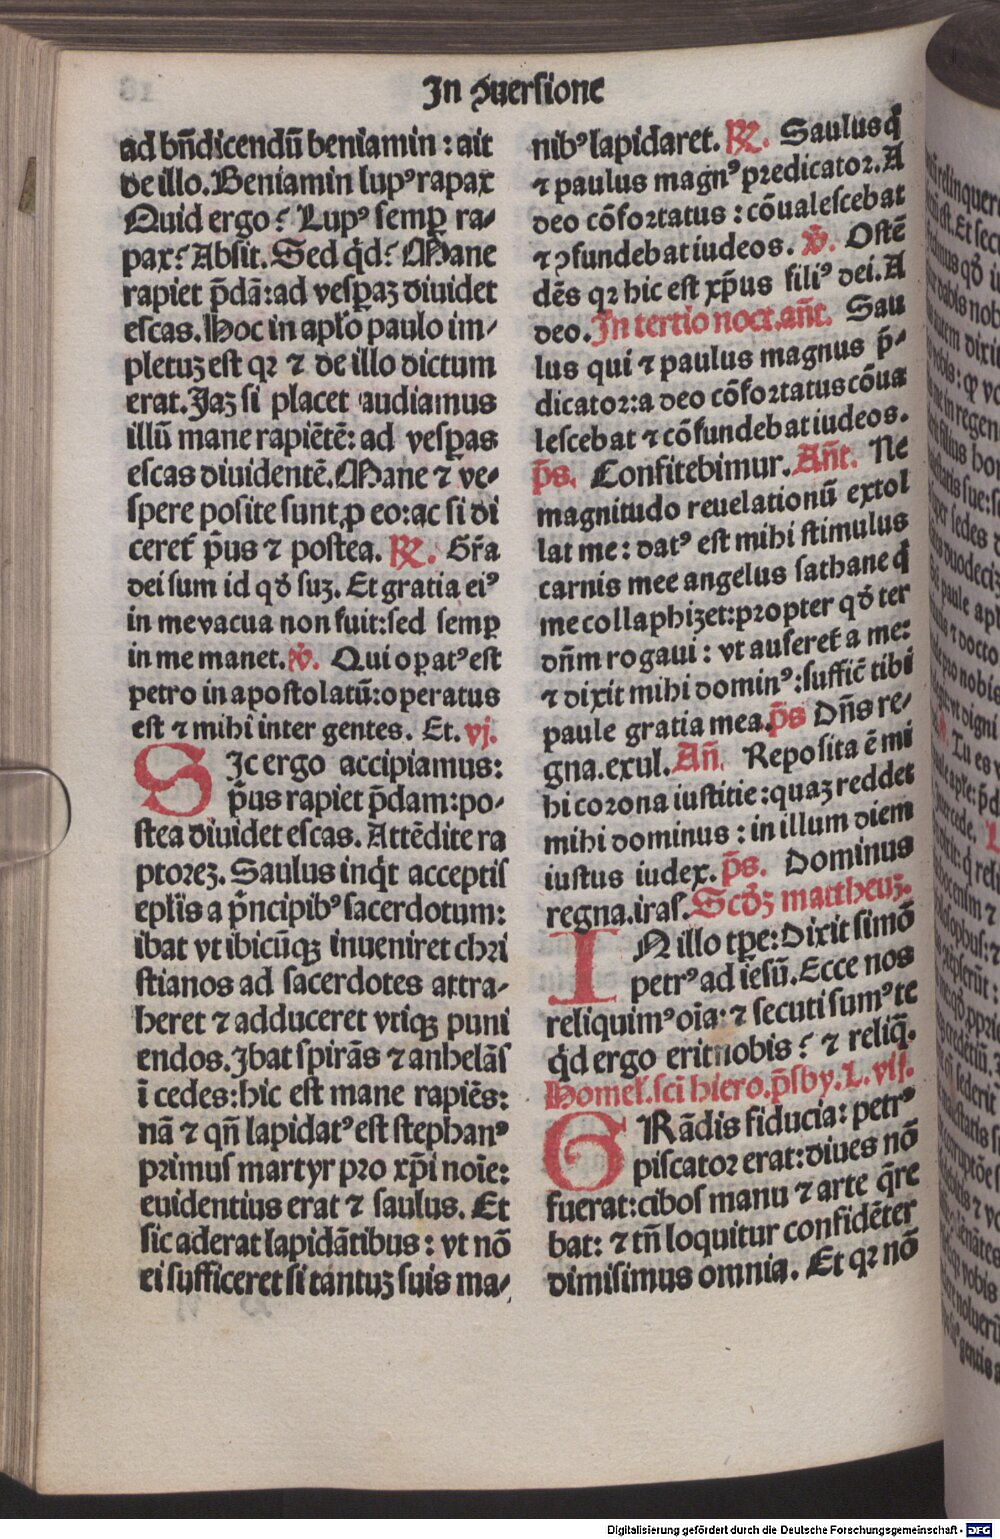 In ꝯuersione
ad bn̄dicendū beniamin : ait
de illo. Beniamin lupꝰ rapax
Quid ergo? Lupꝰ semꝑ ra-
pax? Absit. Sed qͥd? Mane
rapiet p̄dā: ad vesꝑaꝫ diuidet
escas. Hoc in apl'o paulo im-
pletuꝫ est qꝛ ⁊ de illo dictum
erat. Jaꝫ si placet audiamus
illū mane rapiētē: ad vesꝑas
escas diuidentē. Mane ⁊ ve-
spere posite sunt ꝓ eo: ac si di
ceret͛ p̄us ⁊ postea. ℞. Gr̄a
dei sum id qd̛ suꝫ. Et gratia eiꝰ
in me vacua non fuit: sed semꝑ
in me manet. ℣. Qui oꝑatꝰ est
petro in apostolatū: operatus
est ⁊ mihi inter gentes. Et. vj.
SIc ergo accipiamus:
p̄us rapiet p̄dam: po-
stea diuidet escas. Attēdite ra
ptoreꝫ. Saulus inqͥt acceptis
epl'is a pͥncipibꝰ sacerdotum:
ibat vt ibicūqꝫ inueniret chri
stianos ad sacerdotes attra-
heret ⁊ adduceret vtiqꝫ puni
endos. Jbat spirās ⁊ anhelās
ī cedes: hic est mane rapiēs:
nā ⁊ qn̄ lapidatꝰ est stephanꝰ
primus martyr pro xp̄i noīe:
euidentius erat ⁊ saulus. Et
sic aderat lapidātibus : vt nō
ei sufficeret si tantuꝫ suis ma-
nibꝰ lapidaret. ℞. Saulus qͥ
⁊ paulus magnꝰ predicator. A
deo cōfortatus : cōualescebat
⁊ ꝯfundebat iudeos. ℣. Ostē
dēs qꝛ hic est xp̄us filiꝰ dei. A
deo. In tertio noct. an̄t. Sau
lus qui ⁊ paulus magnus p̄-
dicator: a deo cōfortatus cōua
lescebat ⁊ cōfundebat iudeos.
p̄s. Confitebimur. An̄t. Ne
magnitudo reuelationū extol
lat me : datꝰ est mihi stimulus
carnis mee angelus sathane qͥ
me collaphizet: propter qd̛ ter
dn̄m rogaui : vt auferet͛ a me:
⁊ dixit mihi dominꝰ: sufficit̄ tibi
paule gratia mea. p̄s Dn̄s re-
gna. exul. An̄. Reposita ē mi
hi corona iustitie: quaꝫ reddet
mihi dominus : in illum diem
iustus iudex. p̄s. Dominus
regna. iras. Scd̛ꝫ mattheuꝫ.
IN illo tp̄e: Dixit simō
petrꝰ ad iesū. Ecce nos
reliquimꝰ oīa: ⁊ secuti sumꝰ te
qͥd ergo erit nobis? ⁊ reliq̄.
Homel'. sci̅ hiero. p̄sby. L. vij.
GRādis fiducia: petrꝰ
piscator erat: diues nō
fuerat: cibos manu ⁊ arte q̄re
bat: ⁊ tn̄ loquitur confidēter
dimisimus omnia. Et qꝛ nō
Digitalisierung gefördert durch die Deutsche Forschungsgemeinschaft - DFG